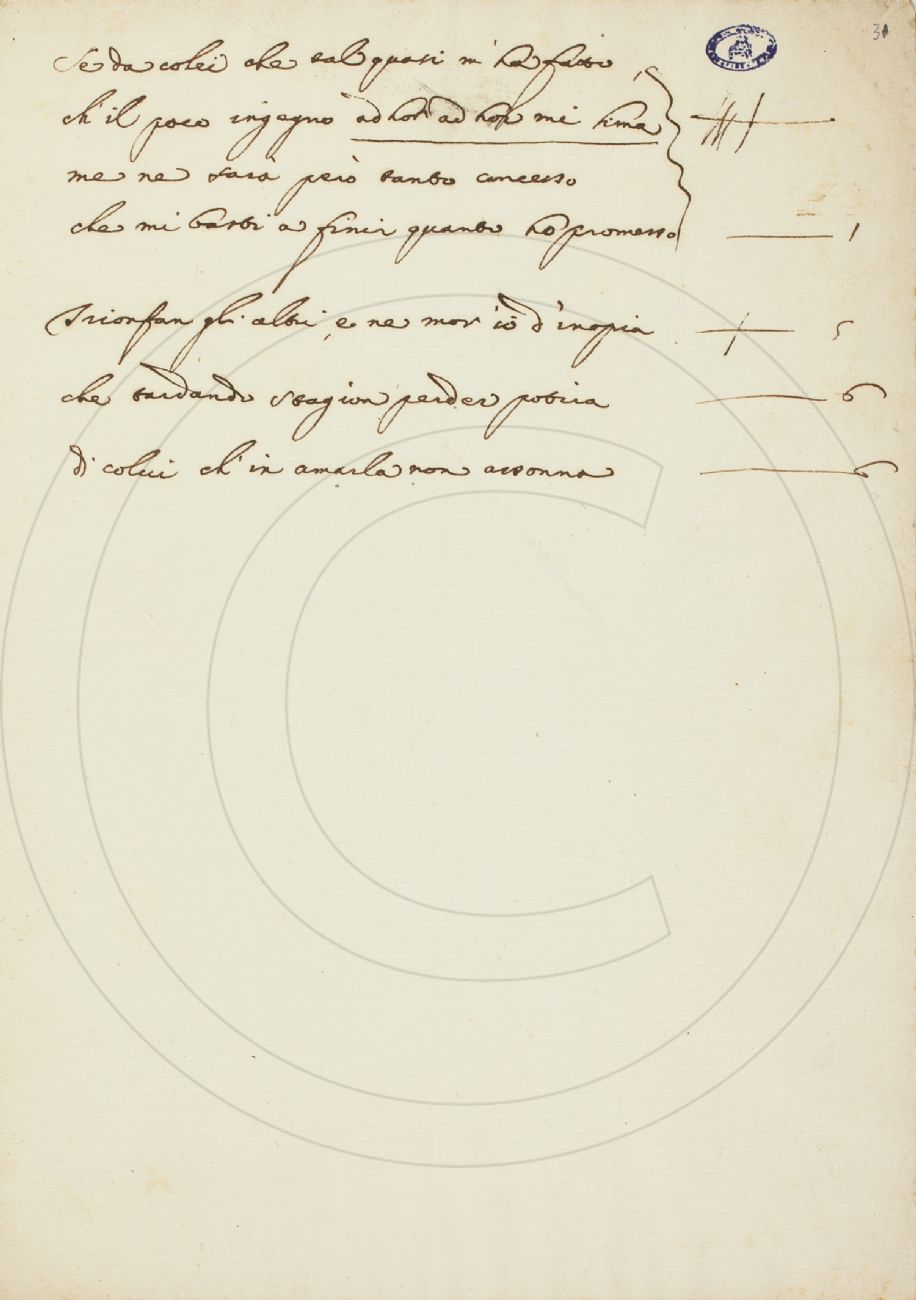 31
Se da colei che tal quasi m'ha fatto
ch'il poco ingegno ad hor ad hor mi lima
me ne sarà però tanto concesso
che mi basti a finir quanto ho promesso 1
Trionfan gli altri, e ne mor'iò d'inopia 5
che tardando stagion perder potria 6
di colui ch'in amarla non assonna 6